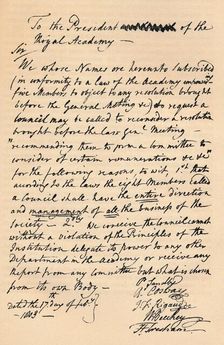 To the President of the
Royal Academy —
Sir
We whose Names are hereunto subscribed
(in conformity to a law of the Academy
five Members) to object to any resolution brought
before the General Meeting &c) do request a
Council may be called to reconsider a resolution
brought before the last Gen.l Meeting —
"recommending them to form a Committee to
consider of certain remunerations &c &c"
for the following reasons, to wit, 1.st that
according to the laws the eight Members called
a Council shall have the entire Direction
and management of all the business of the
Society — 2.dly We conceive the Council cannot
without a violation of the Principles of the
Institution delegate to power to any other
Department in the Academy or receive any
Report from any Committee but what is chosen
from its own Body —
Dated the 17.th day of
1803
J F Rigaud
W Beechey